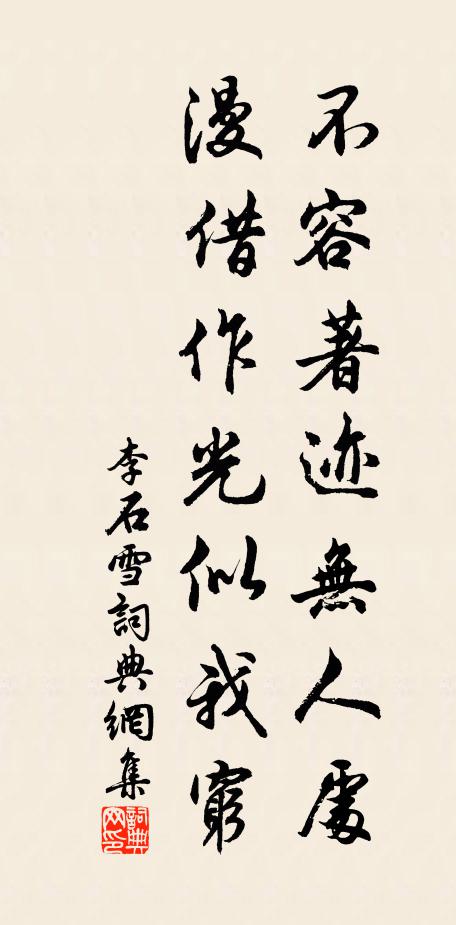 不容著迹無人處
漫借作光似我窮
李石雪詞典網集
詞典網印